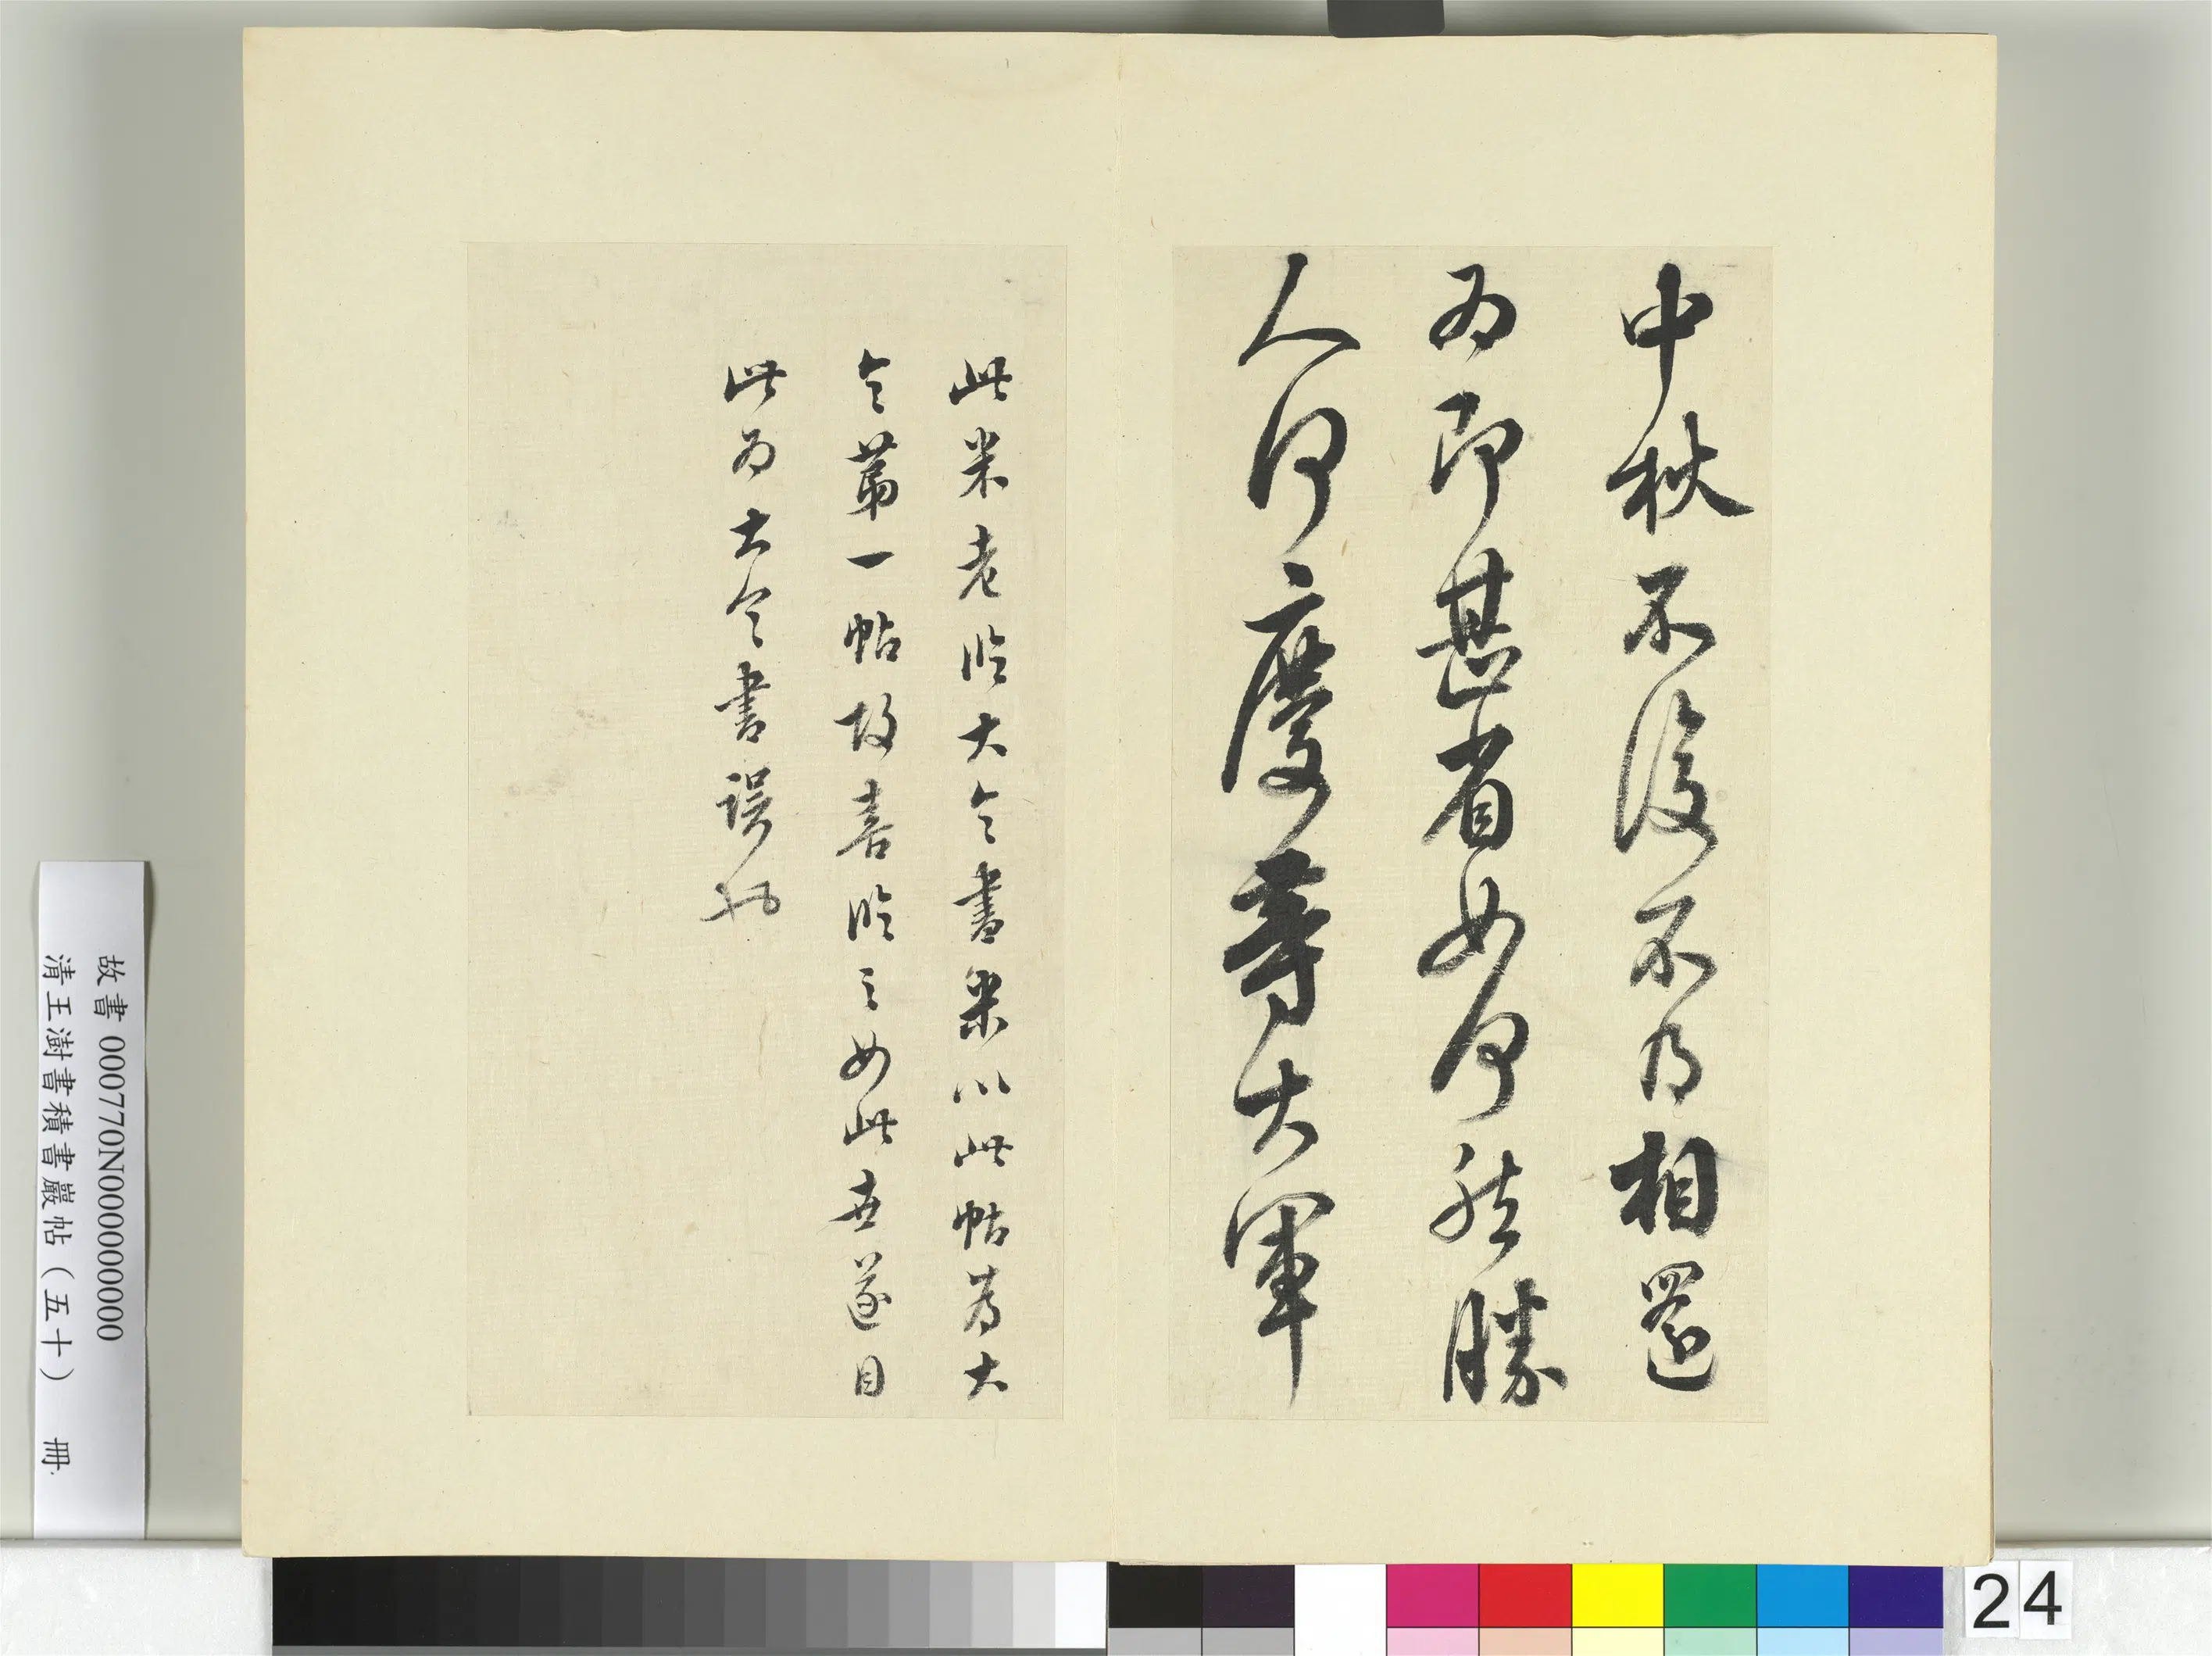 中秋不復不得相還
為即甚省如何然勝
人何慶等大軍
此米老临大令書米以此帖為大
令第一帖故喜临之如此世遂目
此為大令書誤也
故書 000770N000000000
清王澍書積書巖帖（五十） 冊
24